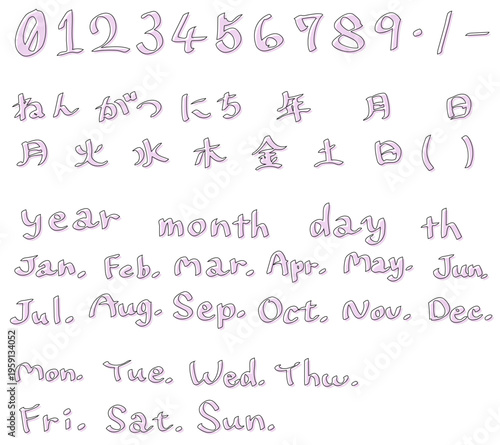 0 1 2 3 4 5 6 7 8 9 · / -
ねん がつ にち 年 月 日
月 火 水 木 金 土 日 ( )
year month day th
Jan. Feb. mar. Apr. May. Jun.
Jul. Aug. Sep. Oct. Nov. Dec.
Mon. Tue. Wed. Thu.
Fri. Sat. Sun.
Adobe Stock | #1959134052